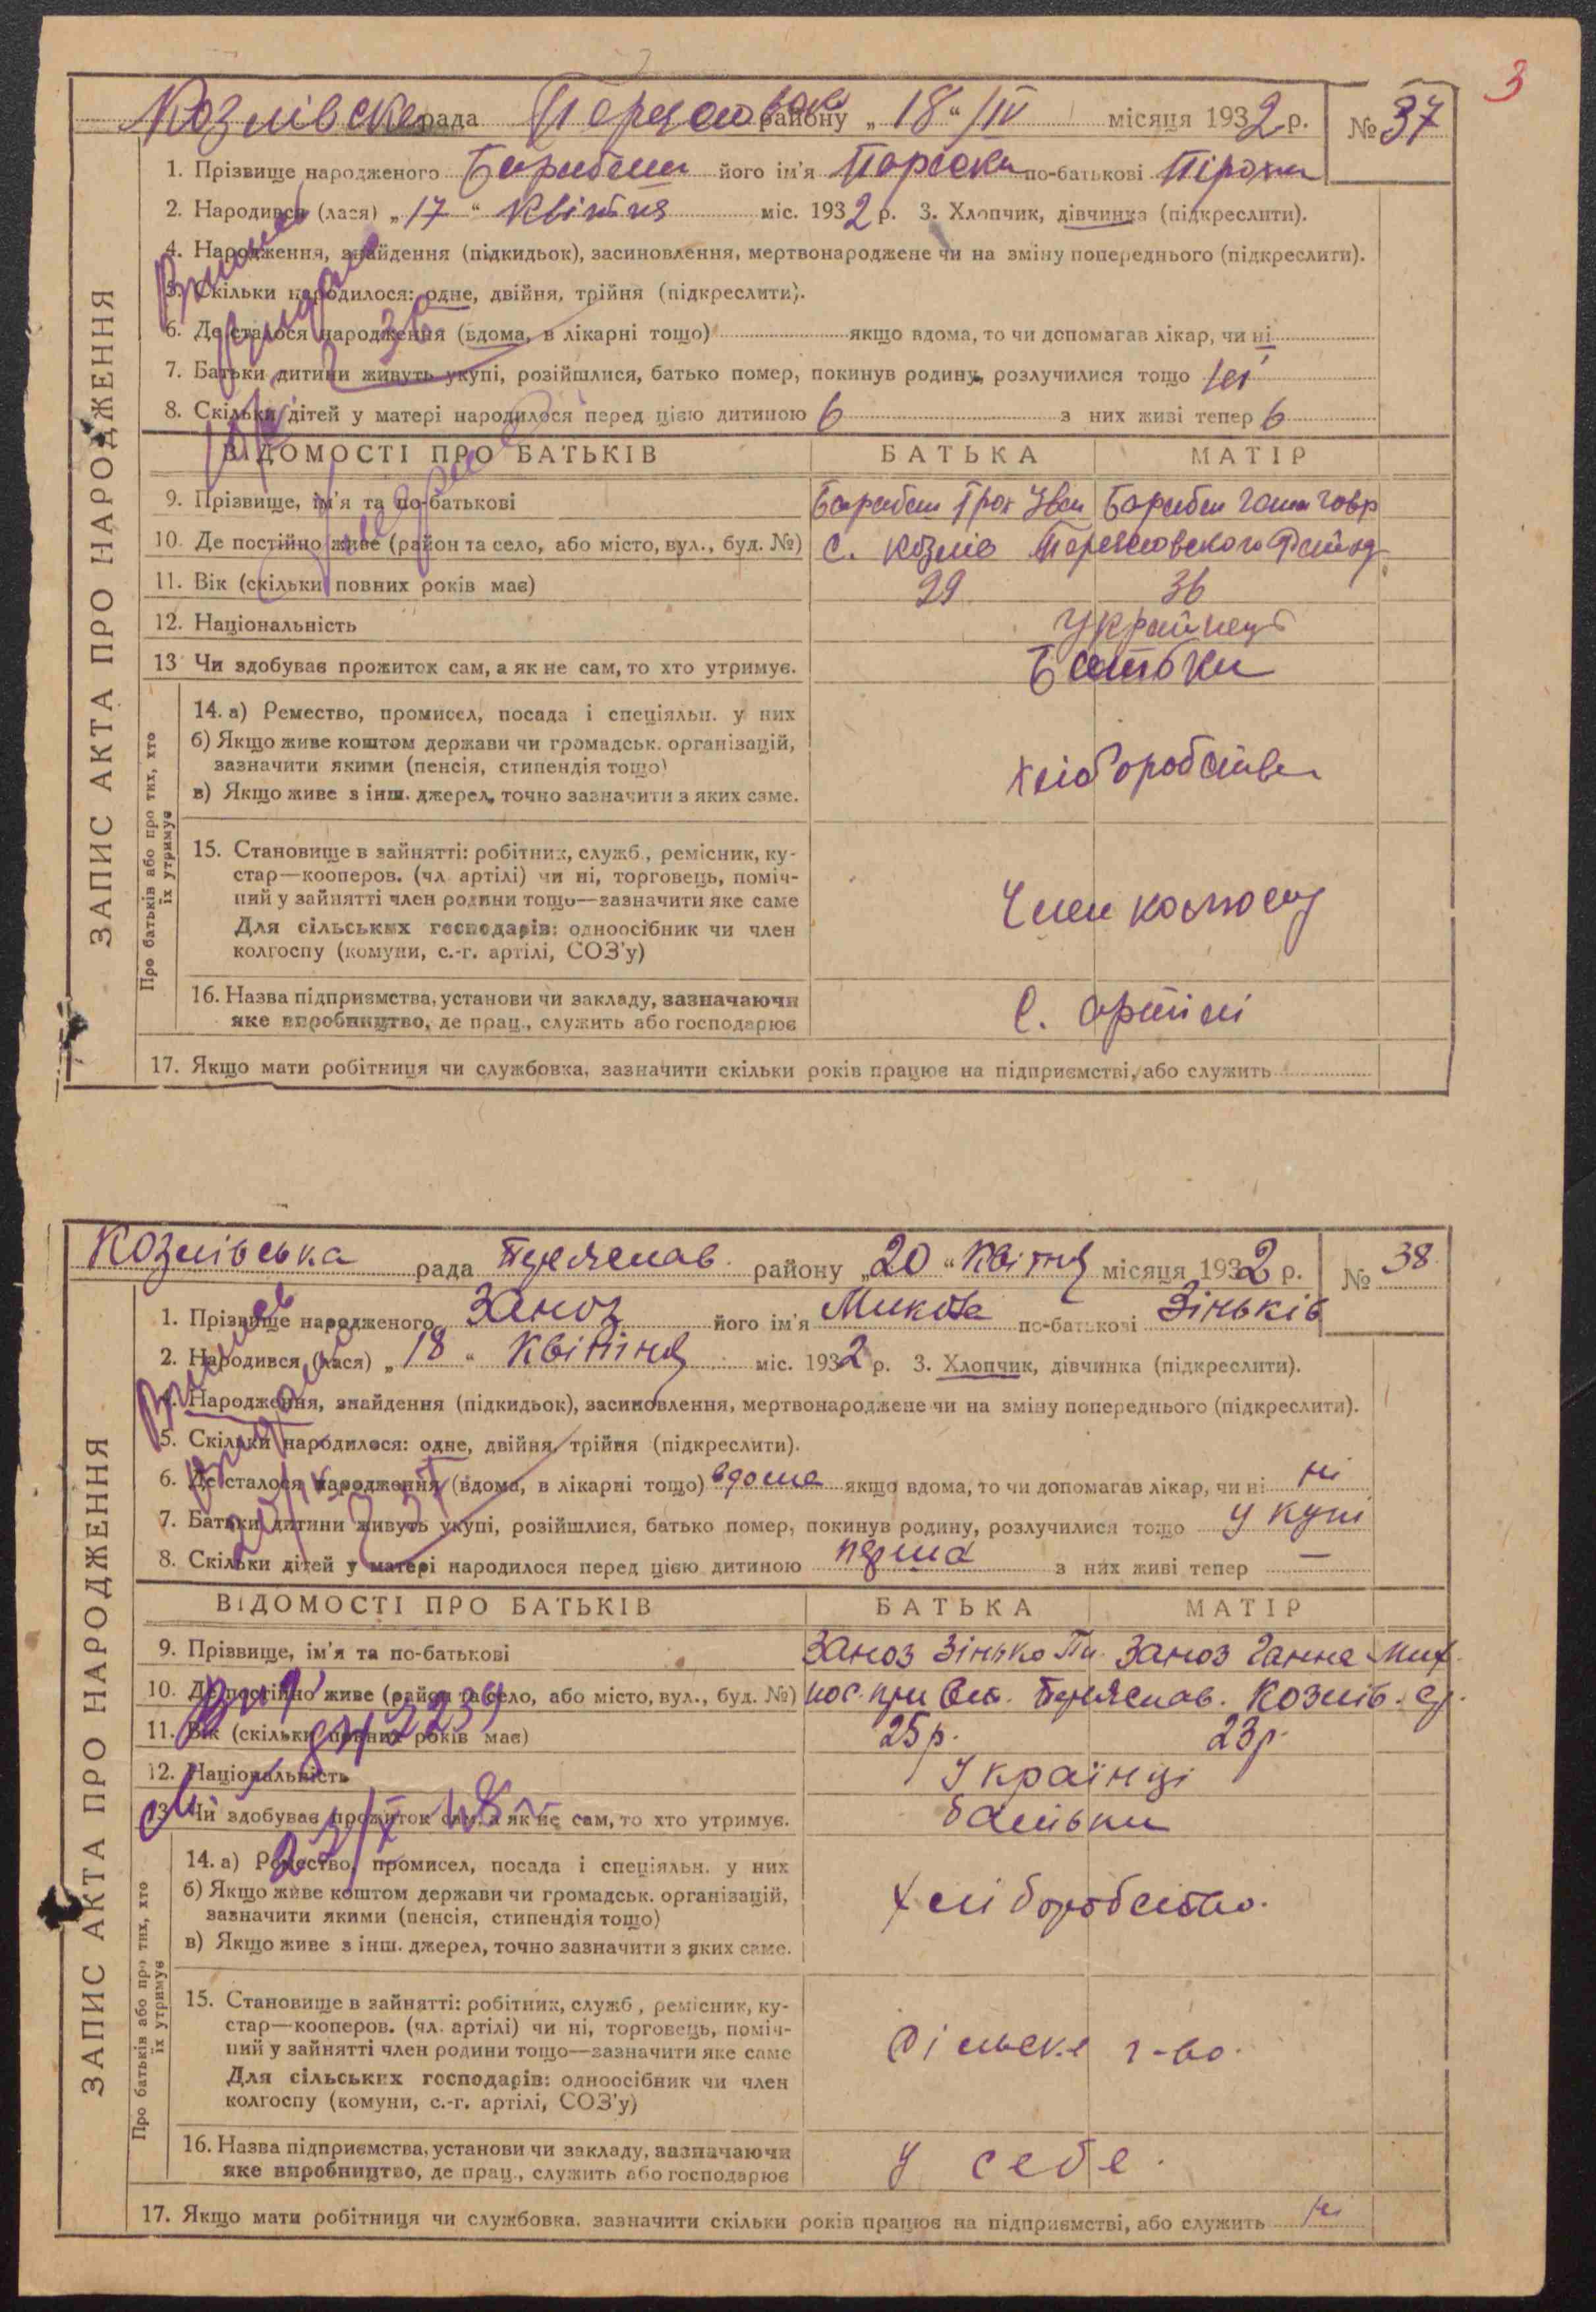 3
Козлівска рада района „18“ IV місяця 1932 р. № 37
1. Прізвище народженого його ім'я по-батькові
2. Народився (лася) „17“ квітня міс. 1932 р. 3. Хлопчик, дівчинка (підкреслити).
4. Народження, знайдення (підкидьок), засиновлення, мертвонароджене чи на зміну попереднього (підкреслити).
5. Скільки народилося: одне, двійня, трійня (підкреслити).
6. Де сталося народження (вдома, в лікарні тощо) якщо вдома, то чи допомагав лікар, чи ні
7. Батьки дитини живуть укупі, розійшлися, батько помер, покинув родину, розлучилися тощо
8. Скільки дітей у матері народилося перед цією дитиною 6 з них живі тепер 6
ВІДОМОСТІ ПРО БАТЬКІВ БАТЬКА МАТІР
9. Прізвище, ім'я та по-батькові
10. Де постійно живе (район та село, або місто, вул., буд. №) с. Козлів
11. Вік (скільки повних років має) 36
12. Національність
13 Чи здобуває прожиток сам, а як не сам, то хто утримує. Батьки
14. а) Ремество, промисел, посада і спеціяльн. у них
б) Якщо живе коштом держави чи громадськ. організацій,
зазначити якими (пенсія, стипендія тощо)
в) Якщо живе з інш. джерел, точно зазначити з яких саме.
хліборобства
15. Становище в зайнятті: робітник, служб., ремісник, ку-
стар—кооперов. (чл. артілі) чи ні, торговець, поміч-
ний у зайнятті член родини тощо—зазначити яке саме
Для сільських господарів: одноосібник чи член
колгоспу (комуни, с.-г. артілі, СОЗ'у)
Член
16. Назва підприємства, установи чи закладу, зазначаючи
яке виробництво, де прац., служить або господарює
С. артілі
17. Якщо мати робітниця чи службовка, зазначити скільки років працює на підприємстві, або служить
ЗАПИС АКТА ПРО НАРОДЖЕННЯ
Про батьків або про тих, хто
їх утримує
Козлівська рада Переяслав. району „20“ квітня місяця 1932 р. № 38
1. Прізвище народженого Заноз його ім'я Микола по-батькові Зіньків
2. Народився (лася) „18“ квітня міс. 1932 р. 3. Хлопчик, дівчинка (підкреслити).
4. Народження, знайдення (підкидьок), засиновлення, мертвонароджене чи на зміну попереднього (підкреслити).
5. Скільки народилося: одне, двійня, трійня (підкреслити).
6. Де сталося народження (вдома, в лікарні тощо) вдома якщо вдома, то чи допомагав лікар, чи ні ні
7. Батьки дитини живуть укупі, розійшлися, батько помер, покинув родину, розлучилися тощо у купі
8. Скільки дітей у матері народилося перед цією дитиною перша з них живі тепер —
ВІДОМОСТІ ПРО БАТЬКІВ БАТЬКА МАТІР
9. Прізвище, ім'я та по-батькові Заноз Зінько Заноз Ганна Мих.
10. Де постійно живе (район та село, або місто, вул., буд. №) Переяслав. Козлів.
11. Вік (скільки повних років має) 25 р. 23 р.
12. Національність Українці
13. Чи здобуває прожиток сам, а як не сам, то хто утримує. батьки
14. а) Ремество, промисел, посада і спеціяльн. у них
б) Якщо живе коштом держави чи громадськ. організацій,
зазначити якими (пенсія, стипендія тощо)
в) Якщо живе з інш. джерел, точно зазначити з яких саме.
хліборобство.
15. Становище в зайнятті: робітник, служб., ремісник, ку-
стар—кооперов. (чл. артілі) чи ні, торговець, поміч-
ний у зайнятті член родини тощо—зазначити яке саме
Для сільських господарів: одноосібник чи член
колгоспу (комуни, с.-г. артілі, СОЗ'у)
Сільське г-во.
16. Назва підприємства, установи чи закладу, зазначаючи
яке виробництво, де прац., служить або господарює
у себе.
17. Якщо мати робітниця чи службовка, зазначити скільки років працює на підприємстві, або служить ні
ЗАПИС АКТА ПРО НАРОДЖЕННЯ
Про батьків або про тих, хто
їх утримує